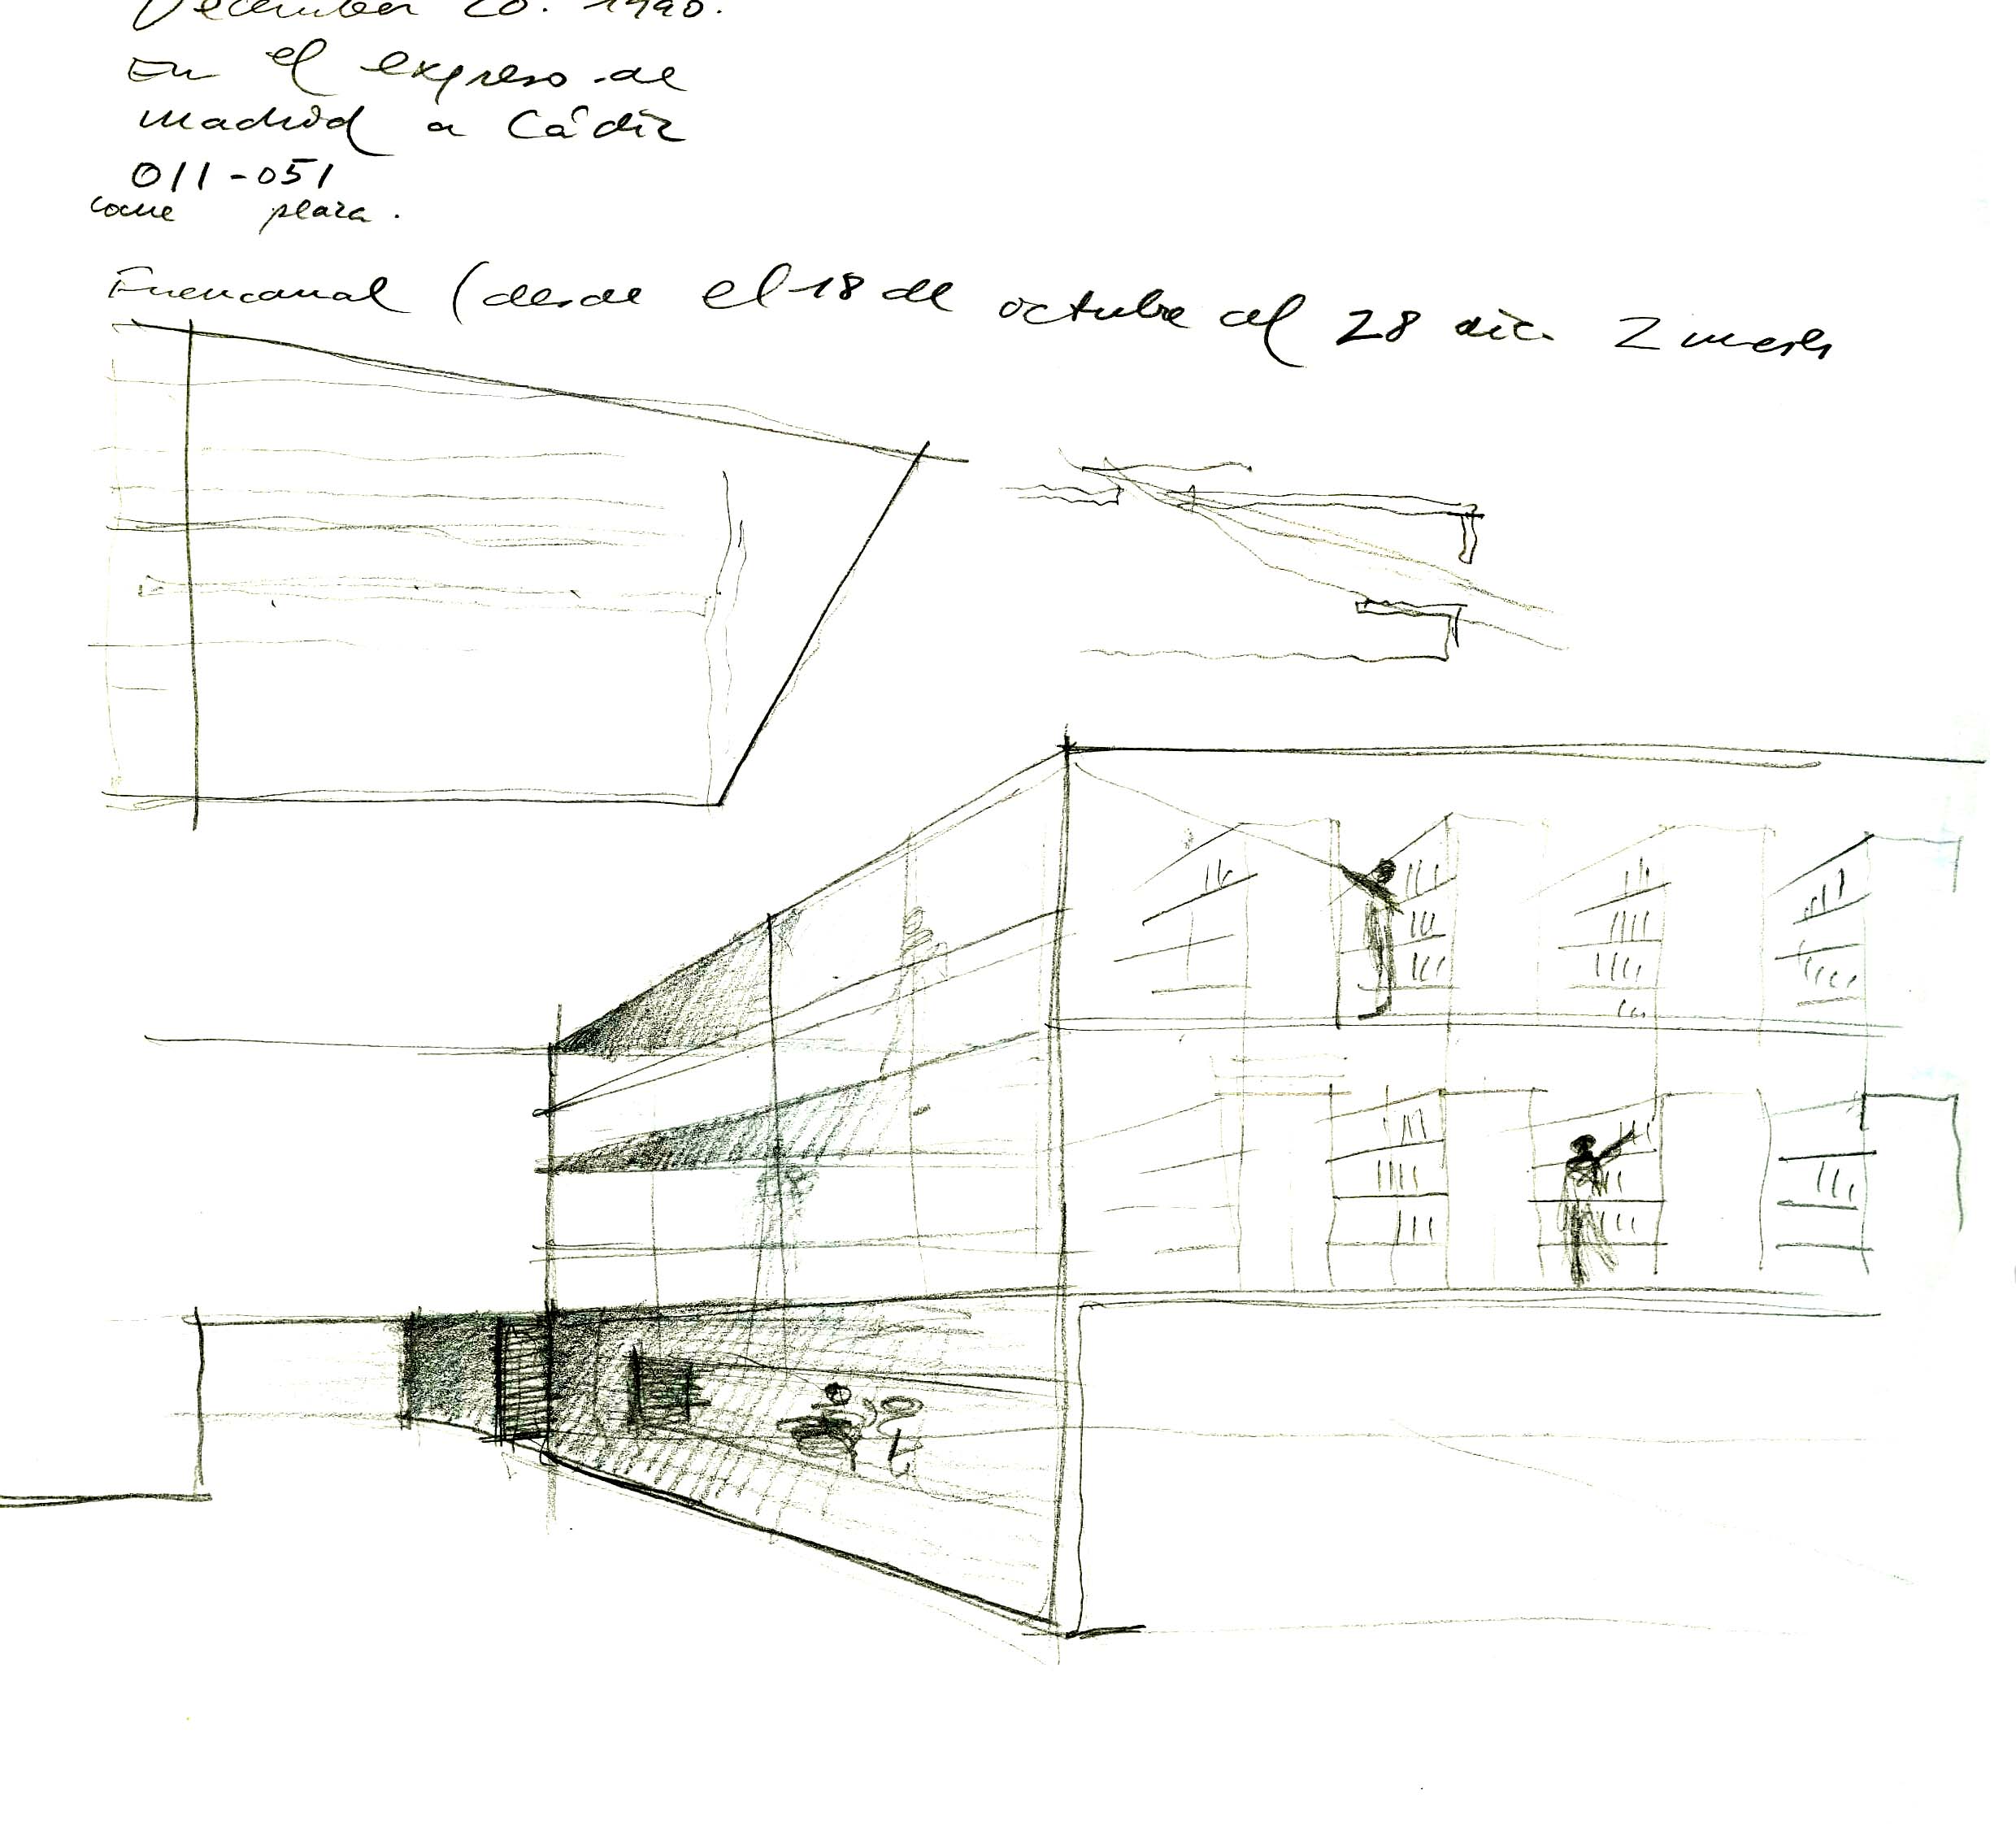 December 20. 1990.
En el expreso de
madrid a Cádiz
011-051
coche plaza.
Fuencarral (desde el 18 de octubre al 28 dic. 2 meses